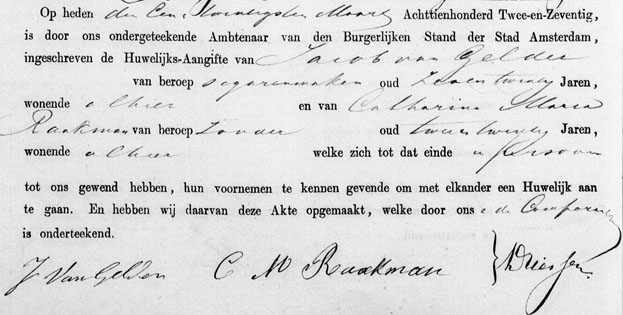 Op heden den Een Twintigsten Maart Achttienhonderd Twee-en-Zeventig,
is door ons ondergeteekende Ambtenaar van den Burgerlijken Stand der Stad Amsterdam,
ingeschreven de Huwelijks-Aangifte van Jacob van Gelder
van beroep segarenmaker oud Zeven twintig Jaren,
wonende alhier en van Catharina Maria
Raakman van beroep Zonder oud twee twintig Jaren,
wonende alhier welke zich tot dat einde in persoon
tot ons gewend hebben, hun voornemen te kennen gevende om met elkander een Huwelijk aan
te gaan. En hebben wij daarvan deze Akte opgemaakt, welke door ons de Comparanten
is onderteekend.
J Van Gelder C M Raakman